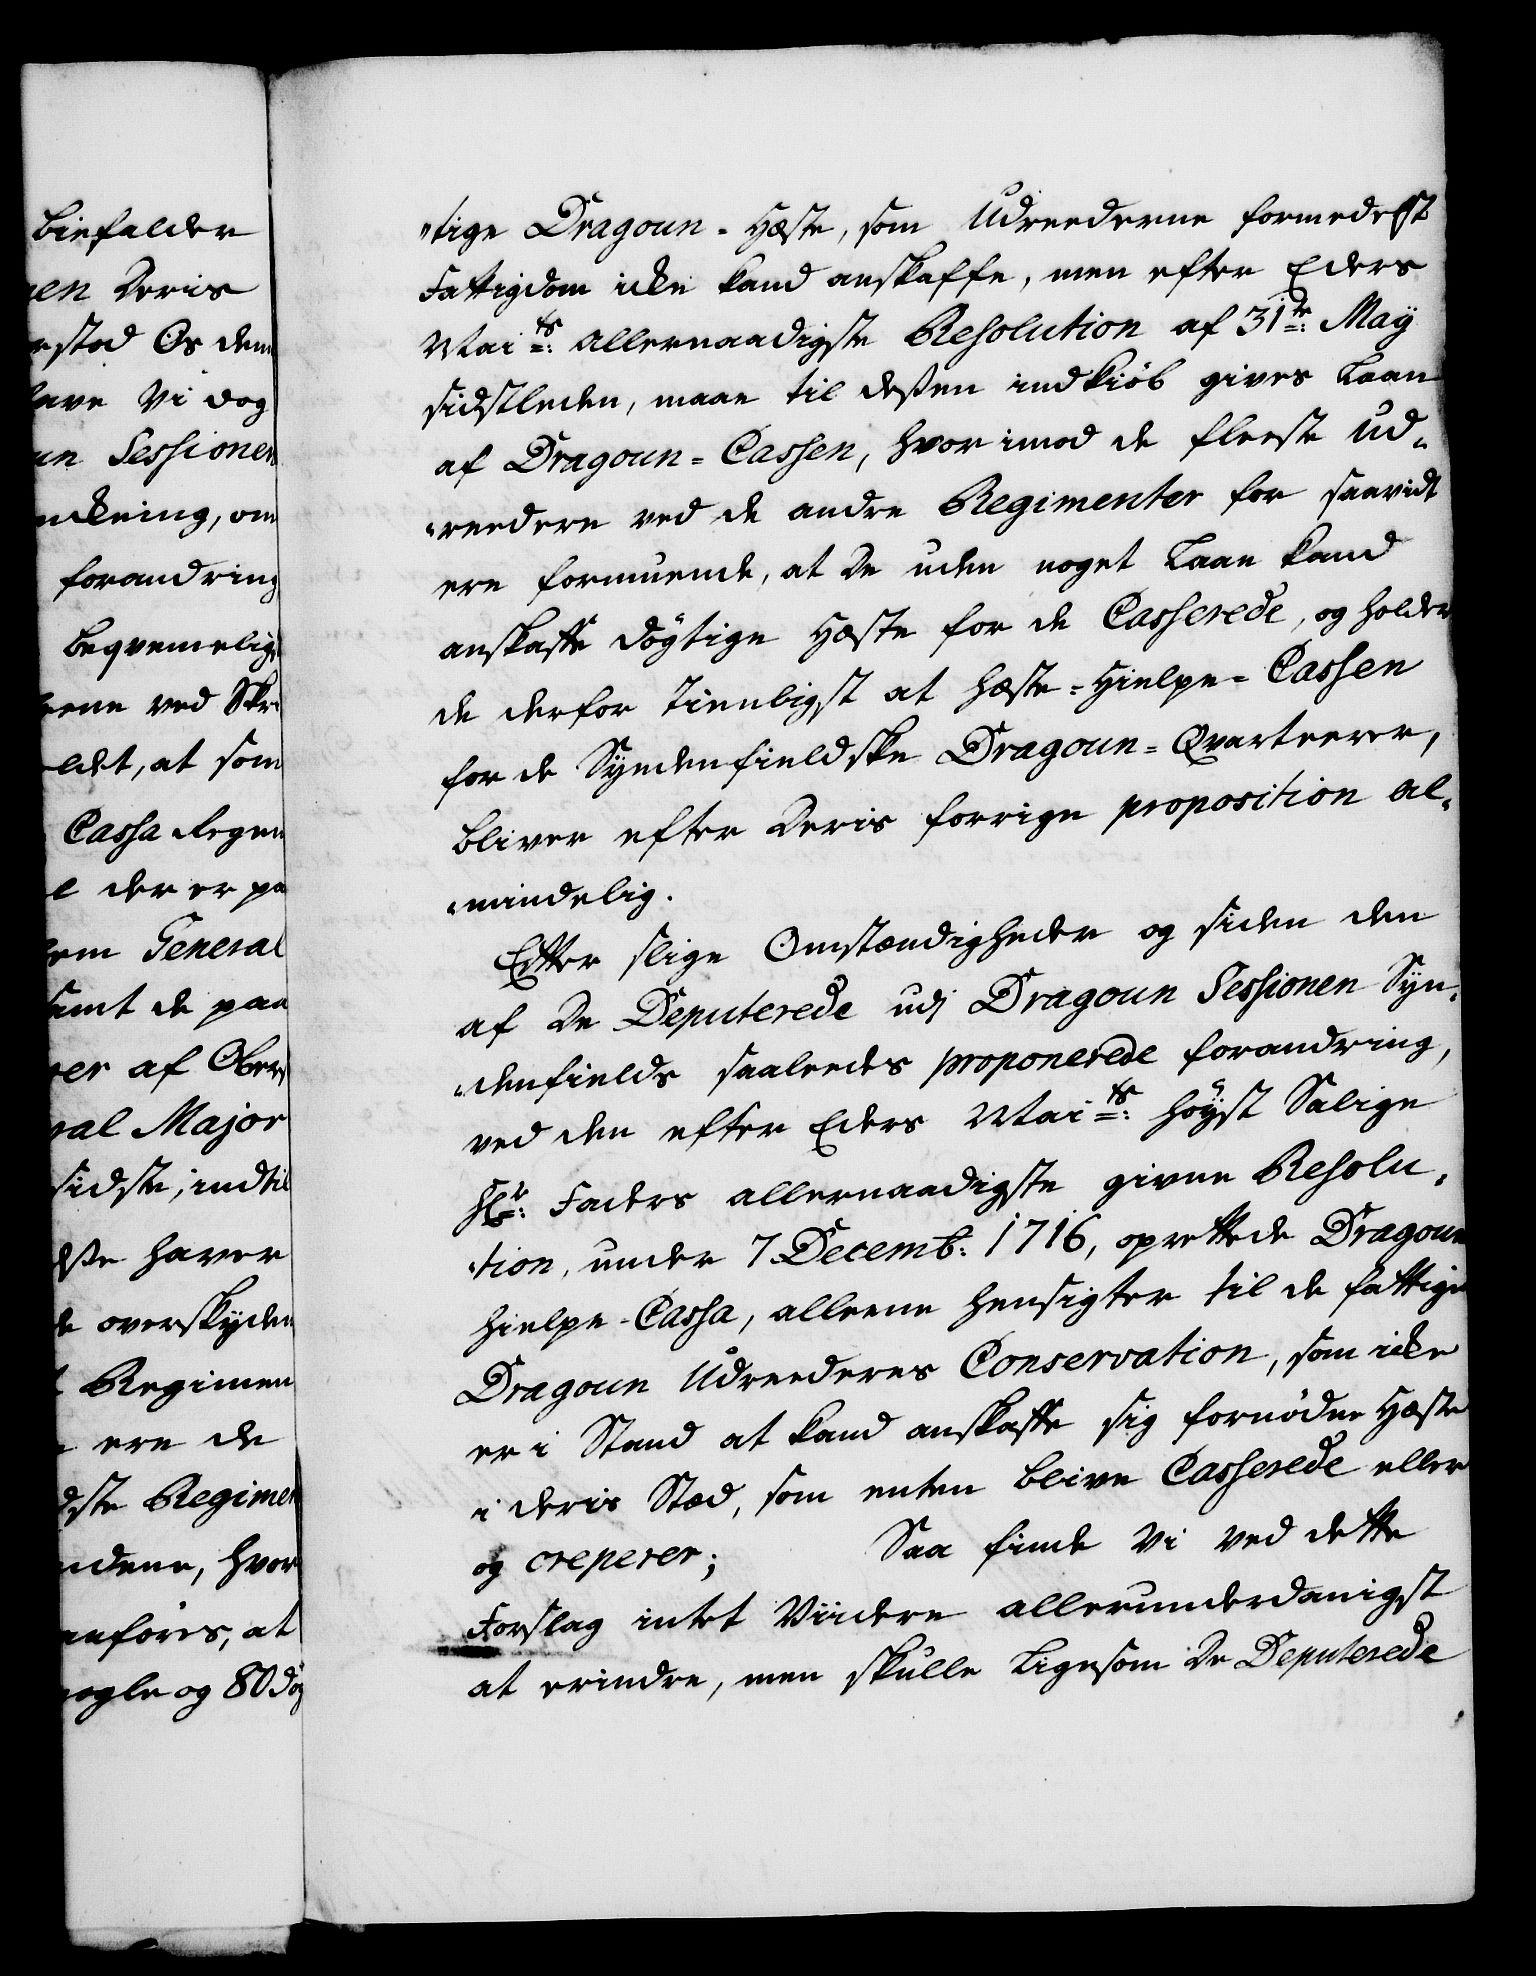 biefalder
en deris
stod Os dem
ave Vi dog
un Sessionen
nckning, om
forandring
beqvemelig
eene ved Skr
ldet, at som
Cassa Regem
l der er pa
em General
samt de paa
er af Ober
ral Major
sidste, indtil
dste haver
de overskyden
t Regimen
e ere de
dste Regimen
ndene, hvor
anføres, at
nogle og 80 dög
"tige Dragoun-Hæste, som Udreederne formedelst
Fattigdom icke kand anskaffe, men efter Eders
Mai<sup>ts</sup>: allernaadigste Resolution af 31<sup>te</sup>: Maÿ
sidstleden, maae til deßen indkiöb gives Laan
af Dragoun=Cassen, hvorimod de fleeste Ud„
„reedere ved de andre Regimenter for saavidt
ere formuende, at De uden noget Laan kand
anskaffe dögtige Hæste for de Casserede, og holder
de derfor tienligst at Hæste=Hielpe=Cassen
for de Syndenfieldske Dragoun=Qvarteerer,
bliver efter deris forrige proposition al„
„mindelig.
Efter slige Omstændigheder og siden den
af De Deputerede udj Dragoun Sessionen Syn„
„denfields saaledes proponerede forandring,
ved den efter Eders Mai<sup>ts</sup>: höÿst Salige
Hr: Faders allernaadigste givne Resolu„
„tion, under 7 Decemb: 1716, oprettede Dragoun
hielpe-Cassa, alleene hensigter til de fattige
Dragoun Udreederes Conservation, som icke
er i Stand at kand anskaffe sig fornödne Hæste
i deris Stæd, som enten blive Casserede eller
og creperer; Saa finde Vi ved dette
Forslag intet Viidere allerunderdanigst
at erindre, men skulle ligesom De Deputerede